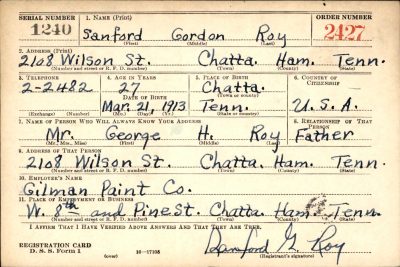 SERIAL NUMBER 1. NAME (Print) ORDER NUMBER
1240 Sanford Gordon Roy 2427
(First) (Middle) (Last)
2. ADDRESS (Print)
2108 Wilson St. Chatta. Ham. Tenn.
(Number and street or R. F. D. number) (Town) (County) (State)
3. TELEPHONE 4. AGE IN YEARS 5. PLACE OF BIRTH 6. COUNTRY OF CITIZENSHIP
2-2482 27 Chatta.
DATE OF BIRTH (Town or county)
Mar. 21, 1913 Tenn. U.S.A.
(Exchange) (Number) (Mo.) (Day) (Yr.) (State or country)
7. NAME OF PERSON WHO WILL ALWAYS KNOW YOUR ADDRESS 8. RELATIONSHIP OF THAT PERSON
Mr. George H. Roy Father
(Mr., Mrs., Miss) (First) (Middle) (Last)
9. ADDRESS OF THAT PERSON
2108 Wilson St. Chatta. Ham. Tenn.
(Number and street or R. F. D. number) (Town) (County) (State)
10. EMPLOYER'S NAME
Gilman Paint Co.
11. PLACE OF EMPLOYMENT OR BUSINESS
W. 8th and Pine St. Chatta. Ham. Tenn.
(Number and street or R. F. D. number) (Town) (County) (State)
I AFFIRM THAT I HAVE VERIFIED ABOVE ANSWERS AND THAT THEY ARE TRUE.
REGISTRATION CARD
D. S. S. Form 1 (over) 16—17105 Sanford G. Roy
(Registrant's signature)